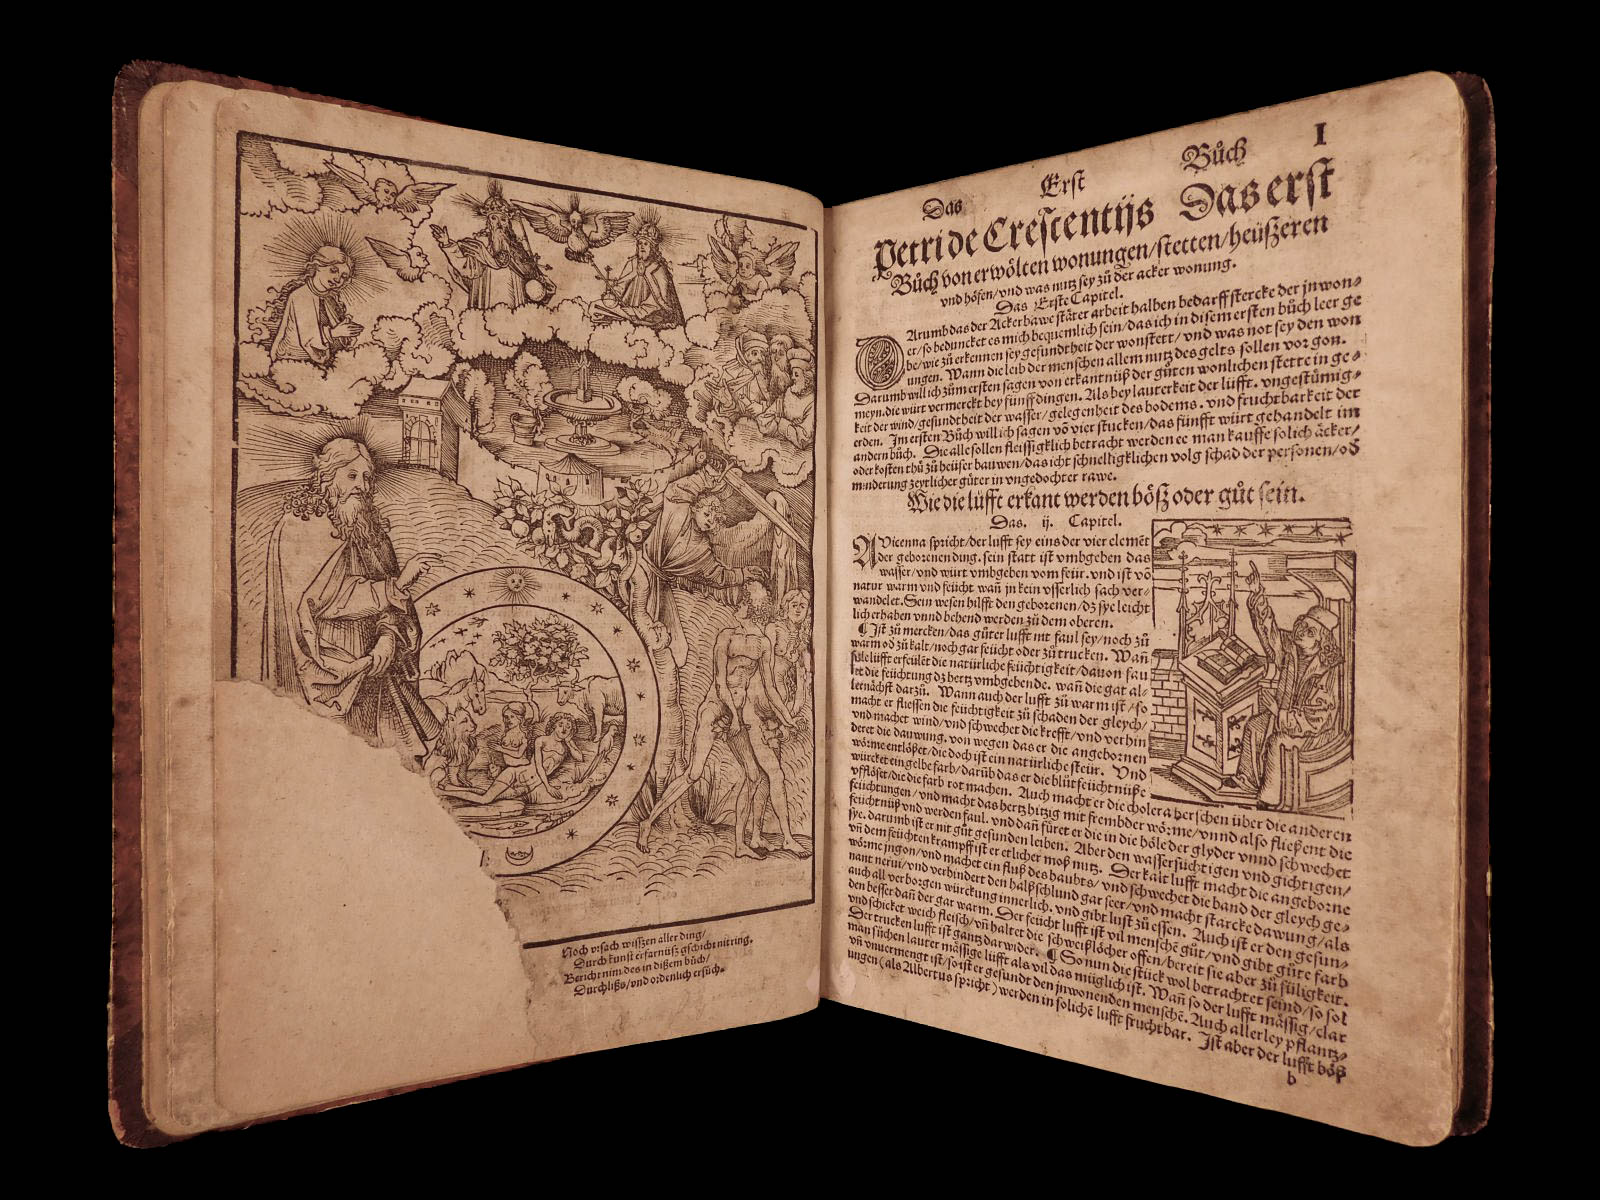 Noch vrsach wisszen aller ding/
Durch kunst erfarnüsz gschicht nit ring.
Bericht nim des in diszem büch/
Durchlisz/vnd ordenlich ersüch.
Das Erst Bůch I
Petri de Crescentijs Das erst
Bůch von erwölten wonungen/stetten/heüszeren
vnd höfen/vnd was nutz sey zů der acker wonung.
Das Erste Capitel.
DArumb das der Ackerbawe stäter arbeit halben bedarff stercke der jnwon-
er/so beduncket es mich bequemlich sein/das ich in disem ersten bůch leer ge
be/wie zů erkennen sey gesundtheit der wonstett/vnd was not sey den won
ungen. Wann die leib der menschen allem nutz des gelts sollen vor gon.
Darumb will ich zům ersten sagen von erkantnüß der gůten wonlichen stette in ge-
meyn. die würt vermerckt bey fünff dingen. Als bey lauterkeit der lüfft. vngestümig-
keit der wind/gesundtheit der wasser/gelegenheit des bodems. vnd fruchtbarkeit der
erden. Im ersten Bůch will ich sagen võ vier stucken/das fünfft würt gehandelt im
andern bůch. Die alle sollen fleissigklich betracht werden ee man kauffe solich äcker/
oder kosten thů zů heüser bauwen/das icht schnelligklichen volg schad der personen/oð
minderung zeytlicher gůter in vngedochter rawe.
Wie die lüfft erkant werden böß oder gůt sein.
Das. ij. Capitel.
AVicenna spricht/der lufft sey eins der vier elemēt
der geborenen ding. sein statt ist vmbgeben das
wasser/vnd würt vmbgeben vom feür. vnd ist vō
natur warm vnd feücht wañ jn kein vsserlich sach ver-
wandelet. Sein wesen hilfft den geborenen/dz sye leicht
lich erhaben vnnd behend werden zů dem oberen.
¶ Ist zů mercken/das gůter lufft nit faul sey/noch zů
warm oð zů kalt/noch gar feücht oder zů trucken. Wañ
fule lüfft erfeület die natürliche feüchtigkeit/dauon fau
let die feüchtung dz hertz vmbgebende. wañ die gat al-
lernächst darzů. Wann auch der lufft zů warm ist/so
macht er fliessen die feüchtigkeit zů schaden der gleych/
vnd machet wind/vnd schwechet die krefft/vnd verhin
deret die dauwung. von wegen das er die angebornen
wörme entlößet/die doch ist ein natürliche steür. Vnd
würcket ein gelbe farb/darüb das er die blůtfeüchtnüße
vfflöset/die die farb rot machen. Auch macht er die cholera herschen über die anderen
feüchtungen/vnd macht das hertz hitzig mit frembder wörme/vnnd also fließent die
feüchtnüß vnd werden faul. vnd dañ füret er die in die höle der glyder vnnd schwechet
sye. darumb ist er nit gůt gesunden leiben. Aber den wassersüchtigen vnd gichtigen/
vñ dem feüchten krampff ist er etlicher moß nutz. Der kalt lufft macht die angeborne
wörme jngon/vnd machet ein fluß des haubts/vnd schwechet die band der gleych ge-
nant nerui/vnd verhindert den halßschlund gar seer/vnd macht starcke dawung/als
auch all verborgen würckung innerlich. vnd gibt lust zů essen. Auch ist er den gesun-
den besser dañ der gar warm. Der feücht lufft ist vil menschē gůt/vnd gibt gůte farb
vnd schicket weich fleisch/vñ haltet die schweißlöcher offen/bereit sie aber zů füligkeit.
Der trucken lufft ist gantz darwider. ¶ So nun die stück wol betrachtet seind/so sol
man sůchen lauter mässige lufft als vil das müglich ist. Wañ so der lufft mässig/clar
vñ vnuermengt ist/so ist er gesundt den jnwonenden menschē. Auch allerley pflantz-
ungen (als Albertus spricht) werden in solichē lufft fruchtbar. Ist aber der lufft böß
b